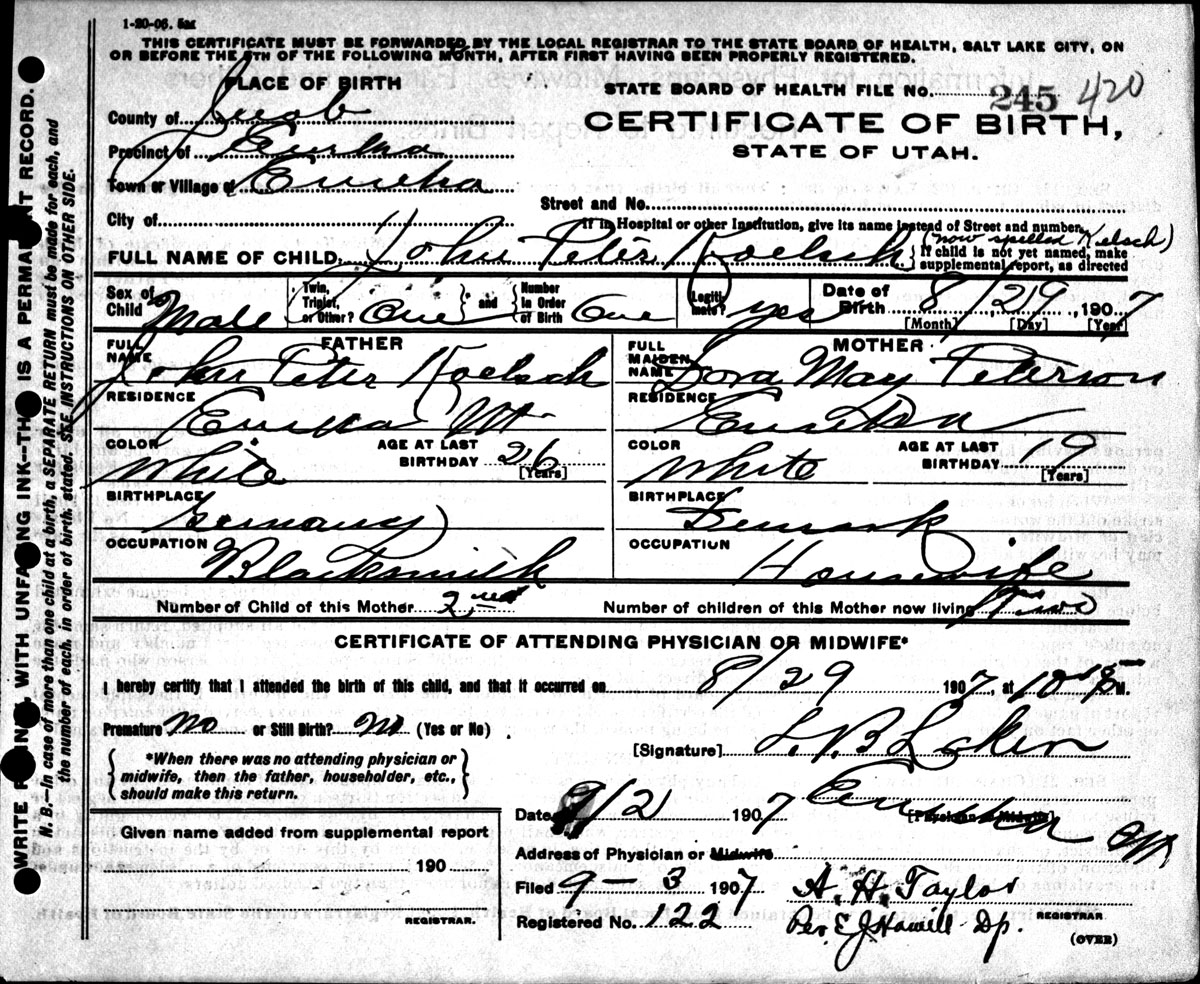 1-20-06. 5M
THIS CERTIFICATE MUST BE FORWARDED BY THE LOCAL REGISTRAR TO THE STATE BOARD OF HEALTH, SALT LAKE CITY, ON
OR BEFORE THE 5TH OF THE FOLLOWING MONTH, AFTER FIRST HAVING BEEN PROPERLY REGISTERED.
PLACE OF BIRTH
STATE BOARD OF HEALTH FILE No. 245 420
County of Juab
CERTIFICATE OF BIRTH,
Precinct of Eureka
STATE OF UTAH.
Town or Village of Eureka
Street and No.
City of
If in Hospital or other Institution, give its name instead of Street and number.
(now spelled Kelsch)
FULL NAME OF CHILD John Peter Koelsch
If child is not yet named, make supplemental report, as directed
Sex of Child Male
Twin, Triplet, or Other? One and Number in Order of Birth One
Legitimate? yes
Date of Birth 8/29, 1907
[Month] [Day] [Year]
FATHER
FULL NAME John Peter Koelsch
RESIDENCE Eureka Ut
COLOR White
AGE AT LAST BIRTHDAY 26 [Years]
BIRTHPLACE Germany
OCCUPATION Blacksmith
MOTHER
FULL MAIDEN NAME Dora May Peterson
RESIDENCE Eureka
COLOR White
AGE AT LAST BIRTHDAY 19 [Years]
BIRTHPLACE Demark
OCCUPATION Housewife
Number of Child of this Mother 2
Number of children of this Mother now living Two
CERTIFICATE OF ATTENDING PHYSICIAN OR MIDWIFE*
I hereby certify that I attended the birth of this child, and that it occurred on 8/29 1907, at M.
Premature No or Still Birth? No (Yes or No)
[Signature]
*When there was no attending physician or
midwife, then the father, householder, etc.,
should make this return.
Date 9/2 1907
[Physician or Midwife]
Eureka
Given name added from supplemental report
Address of Physician or Midwife
190
Filed 9-3 1907 A. H. Taylor
REGISTRAR.
Registered No. 122
Per. E J Dp.
REGISTRAR
(OVER)
WRITE PLAINLY, WITH UNFADING INK—THIS IS A PERMANENT RECORD.
N. B.—In case of more than one child at a birth, a SEPARATE RETURN must be made for each, and
the number of each, in order of birth, stated. SEE INSTRUCTIONS ON OTHER SIDE.